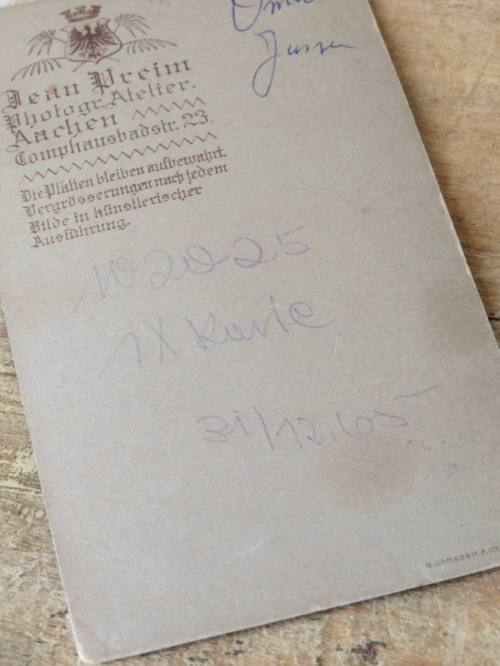 Jean Preim
Photogr. Atelier.
Aachen
Comphausbadstr. 23.
Die Platten bleiben aufbewahrt.
Vergrösserungen nach jedem
Bilde in künstlerischer
Ausführung.
102025
1X
31/12.05